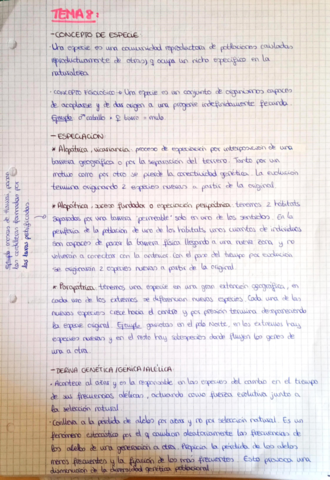 TEMA 8:
- CONCEPTO DE ESPECIE
· Una especie es una comunidad reproductora de poblaciones (aisladas
reproductivamente de otros) q ocupa un nicho específico en la
naturaleza.
· CONCEPTO FISIOLÓGICO → Una especie es un conjunto de organismos capaces
de acoplarse y de dar origen a una progenie indefinidamente fecunda.
Ejemplo: ♂ caballo + ♀ burro = mula
- ESPECIACIÓN
* Alopátrica, vicariancia: proceso de especiación por interposición de una
barrera geográfica o por la separación del terreno. Tanto por un
motivo como por otro se pierde la conectividad genética. La evolución
termina originando 2 especies nuevas a partir de la original.
* Alopátrica, fundadas o especiación peripátrica: tenemos 2 hábitats
separados por una barrera "permeable" solo en uno de los sentidos. En la
periferia de la población de uno de los hábitats, unos cuantos de individuos
son capaces de pasar la barrera física llegando a una nueva área, y no
volverán a conectar con la anterior. Con el paso del tiempo por evolución
se originarán 2 especies nuevas a partir de la original.
Ejemplo:
los
las aves
* Parapátrica: tenemos una especie en una gran extensión geográfica, en
cada uno de los extremos se diferencian nuevas especies. Cada una de las
nuevas especies crece hacia el cambio y por presión termina desapareciendo
la especie original. Ejemplo: gaviotas en el polo norte, en los extremos hay
especies nuevas y en el resto hay subespecies donde fluyen los genes de
una a otra.
- DERIVA GENÉTICA /GÉNICA/ALÉLICA
· Acontece al azar y es la responsable en las especies del cambio en el tiempo
de sus frecuencias alélicas, actuando como fuerza evolutiva junto a
la selección natural
· Conlleva a la pérdida de alelos por azar y no por selección natural. Es un
fenómeno estocástico por el q cambian aleatoriamente las frecuencias de
los alelos de una generación a otra. Propicia la pérdida de los alelos
menos frecuentes y la fijación de los más frecuentes. Esto provoca una
disminución de la diversidad genética poblacional.